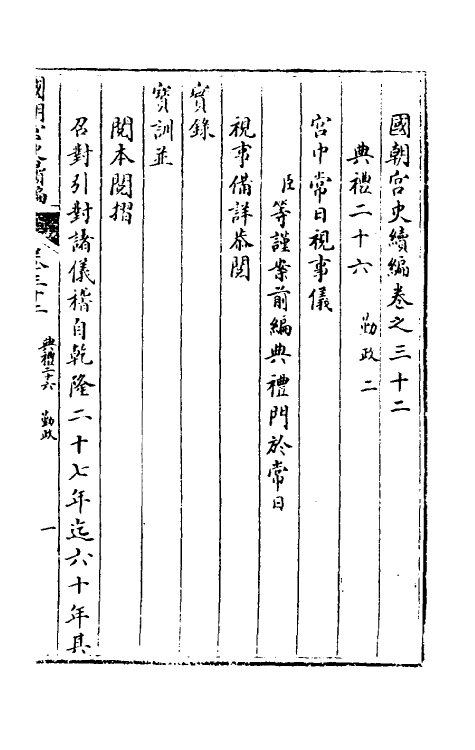 國朝宮史續編卷之三十二
典禮二十六　勤政二
宮中常日視事儀
臣等謹案前編典禮門於常日
視事備詳恭閱
實錄
寳訓並
閱本閱摺
召對引對諸儀稽自乾隆二十七年迄六十年其
國朝宮史續編　卷三十二　典禮二十六　勤政　一